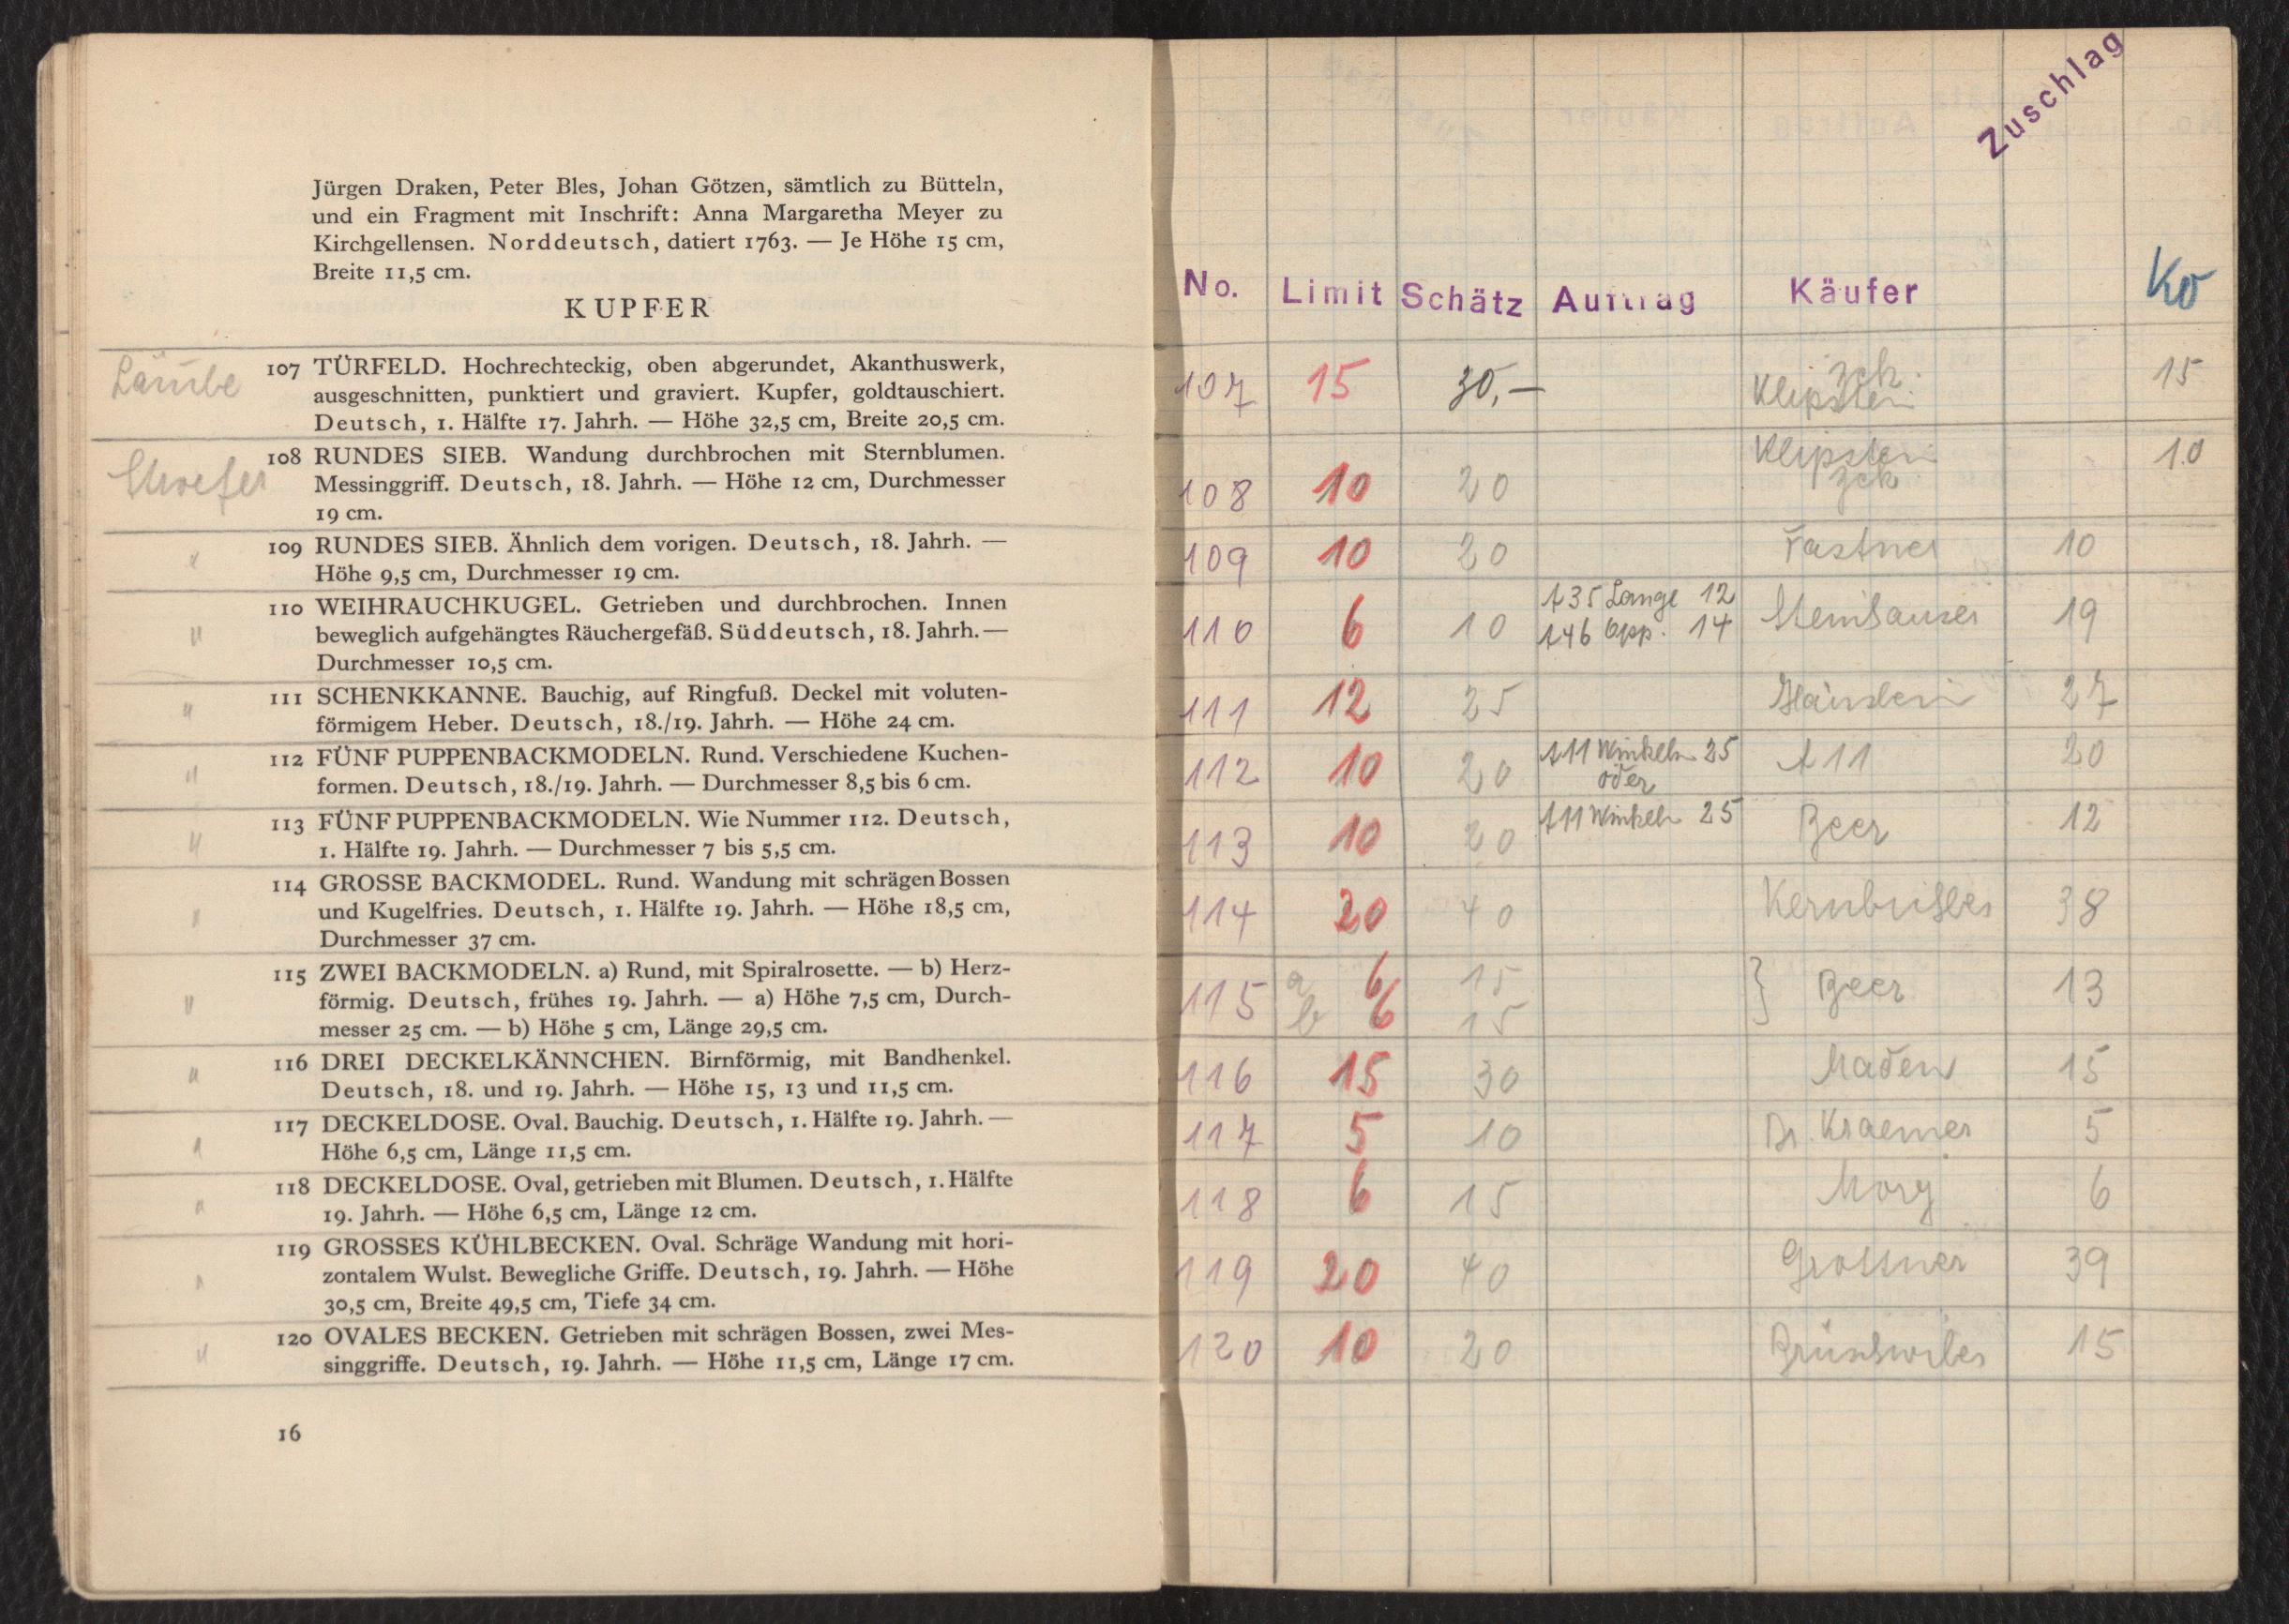 Jürgen Draken, Peter Bles, Johan Götzen, sämtlich zu Bütteln,
und ein Fragment mit Inschrift: Anna Margaretha Meyer zu
Kirchgellensen. Norddeutsch, datiert 1763. — Je Höhe 15 cm,
Breite 11,5 cm.
KUPFER
107 TÜRFELD. Hochrechteckig, oben abgerundet, Akanthuswerk,
ausgeschnitten, punktiert und graviert. Kupfer, goldtauschiert.
Deutsch, 1. Hälfte 17. Jahrh. — Höhe 32,5 cm, Breite 20,5 cm.
108 RUNDES SIEB. Wandung durchbrochen mit Sternblumen.
Messinggriff. Deutsch, 18. Jahrh. — Höhe 12 cm, Durchmesser
19 cm.
" 109 RUNDES SIEB. Ähnlich dem vorigen. Deutsch, 18. Jahrh. —
Höhe 9,5 cm, Durchmesser 19 cm.
" 110 WEIHRAUCHKUGEL. Getrieben und durchbrochen. Innen
beweglich aufgehängtes Räuchergefäß. Süddeutsch, 18. Jahrh. —
Durchmesser 10,5 cm.
" 111 SCHENKKANNE. Bauchig, auf Ringfuß. Deckel mit voluten-
förmigem Heber. Deutsch, 18./19. Jahrh. — Höhe 24 cm.
" 112 FÜNF PUPPENBACKMODELN. Rund. Verschiedene Kuchen-
formen. Deutsch, 18./19. Jahrh. — Durchmesser 8,5 bis 6 cm.
" 113 FÜNF PUPPENBACKMODELN. Wie Nummer 112. Deutsch,
1. Hälfte 19. Jahrh. — Durchmesser 7 bis 5,5 cm.
" 114 GROSSE BACKMODEL. Rund. Wandung mit schrägen Bossen
und Kugelfries. Deutsch, 1. Hälfte 19. Jahrh. — Höhe 18,5 cm,
Durchmesser 37 cm.
" 115 ZWEI BACKMODELN. a) Rund, mit Spiralrosette. — b) Herz-
förmig. Deutsch, frühes 19. Jahrh. — a) Höhe 7,5 cm, Durch-
messer 25 cm. — b) Höhe 5 cm, Länge 29,5 cm.
" 116 DREI DECKELKÄNNCHEN. Birnförmig, mit Bandhenkel.
Deutsch, 18. und 19. Jahrh. — Höhe 15, 13 und 11,5 cm.
" 117 DECKELDOSE. Oval. Bauchig. Deutsch, 1. Hälfte 19. Jahrh. —
Höhe 6,5 cm, Länge 11,5 cm.
" 118 DECKELDOSE. Oval, getrieben mit Blumen. Deutsch, 1. Hälfte
19. Jahrh. — Höhe 6,5 cm, Länge 12 cm.
" 119 GROSSES KÜHLBECKEN. Oval. Schräge Wandung mit hori-
zontalem Wulst. Bewegliche Griffe. Deutsch, 19. Jahrh. — Höhe
30,5 cm, Breite 49,5 cm, Tiefe 34 cm.
" 120 OVALES BECKEN. Getrieben mit schrägen Bossen, zwei Mes-
singgriffe. Deutsch, 19. Jahrh. — Höhe 11,5 cm, Länge 17 cm.
16
Zuschlag
No. Limit Schätz Auftrag Käufer Ko
107 15 30,— Klipstein zck. 15
108 10 20 Klipstein zck 10
109 10 20 Fastner 10
110 6 10 A35 Lange 12 Steinhauser 19
A46 Opp. 14
111 12 25 27
112 10 20 A11 Winkeln 25 A11 20
oder
113 10 20 A11 Winkeln 25 Beer 12
114 20 40 38
115 a 6 15 } Beer 13
b 6 15
116 15 30 Maden 15
117 5 10 Dr. Kraemer 5
118 6 15 6
119 20 40 39
120 10 20 15